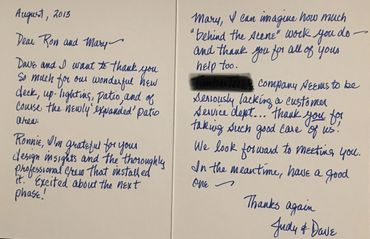 August, 2013
Dear Ron and Mary—
Dave and I want to thank you
so much for our wonderful new
deck, up-lighting, patio, and of
course the newly 'expanded' patio
area.
Ronnie, I'm grateful for your
design insights and the thoroughly
professional crew that installed
it. Excited about the next
phase!
Mary, I can imagine how much
"behind the scene" work you do—
and thank you for all of your
help too.
company seems to be
seriously lacking a customer
service dept... thank you for
taking such good care of us!
We look forward to meeting you.
In the meantime, have a good
one —
Thanks again
Judy & Dave